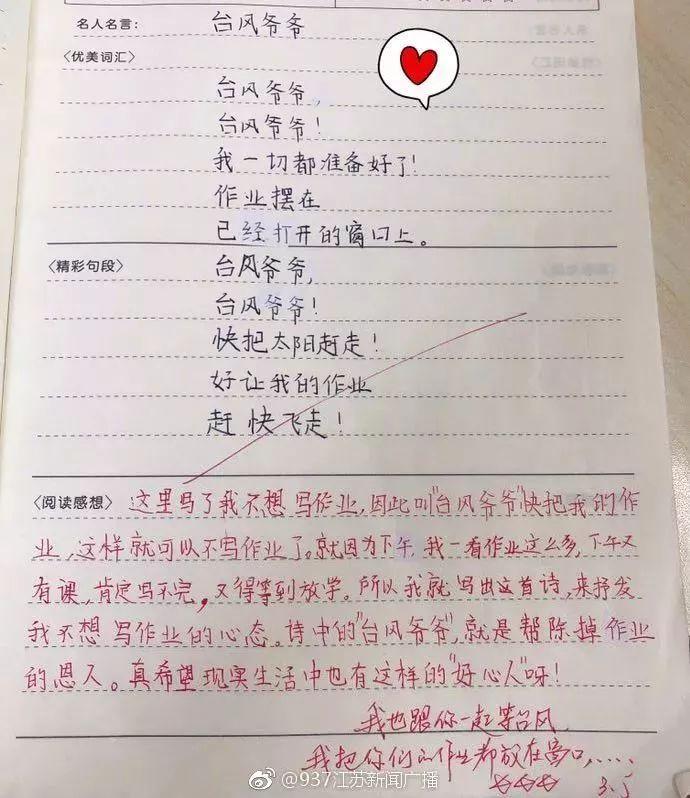 名人名言： 台风爷爷
〈优美词汇〉
台风爷爷，
台风爷爷！
我一切都准备好了！
作业摆在
已经打开的窗口上。
〈精彩句段〉 台风爷爷，
台风爷爷！
快把太阳赶走！
好让我的作业
赶快飞走！
〈阅读感想〉 这里写了我不想写作业，因此叫"台风爷爷"快把我们作
业，这样就可以不写作业了。就因为下午，我一看作业这么多，下午又
有课，肯定写不完，又得等到放学。所以我就写出这首诗，来抒发
我不想写作业的心态。诗中的"台风爷爷"，就是帮除掉作业
的恩人。真希望现实生活中也有这样的"好心人"呀！
我也跟你一起等台风
我把你们的作业都放在窗口，……
☆☆☆ 3.5
@937江苏新闻广播